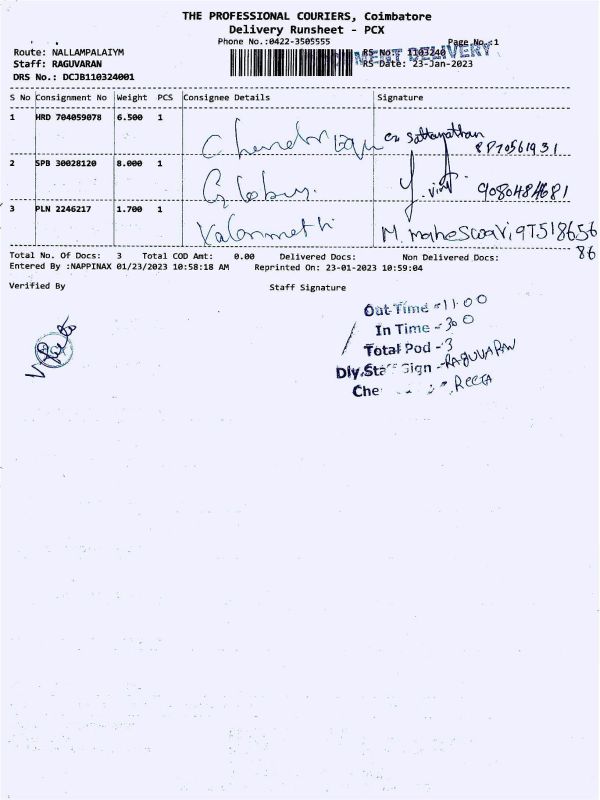 THE PROFESSIONAL COURIERS, Coimbatore
Delivery Runsheet - PCX
Phone No.:0422-3505555 Page No.:1
Route: NALLAMPALAIYM RS No: 1103240
MENT DELIVERY
Staff: RAGUVARAN RS Date: 23-Jan-2023
DRS No.: DCJB110324001
S No Consignment No Weight PCS Consignee Details Signature
1 HRD 704059078 6.500 1
2 SPB 30028120 8.000 1 Globus. 9080484681
3 PLN 2246217 1.700 1 M. maheswari, 9751865686
Total No. Of Docs: 3 Total COD Amt: 0.00 Delivered Docs: Non Delivered Docs:
Entered By :NAPPINAX 01/23/2023 10:58:18 AM Reprinted On: 23-01-2023 10:59:04
Verified By Staff Signature
Out Time - 11:00
In Time - 3:00
Total Pod - 3
Dly.Staff Sign - RAGUVARAN
Che REETA